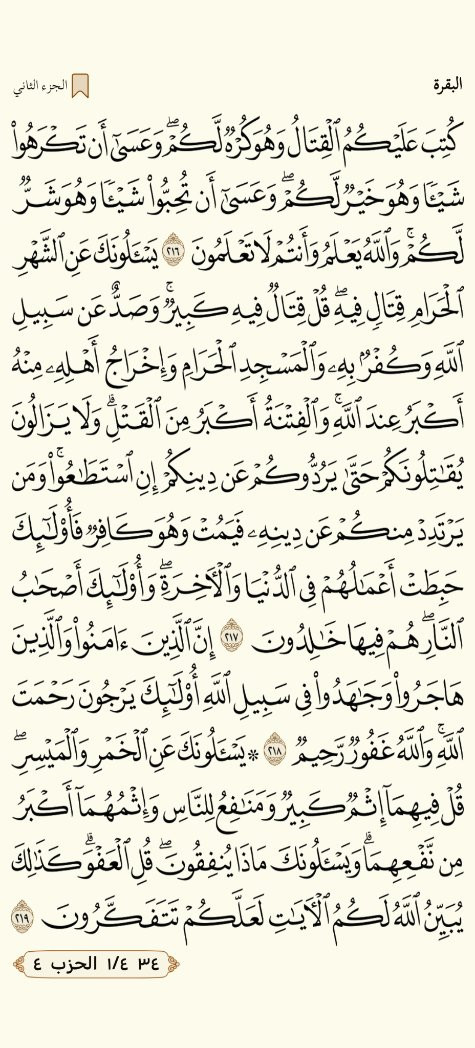 البقرة
الجزء الثاني
كُتِبَ عَلَيۡكُمُ ٱلۡقِتَالُ وَهُوَ كُرۡهٞ لَّكُمۡۖ وَعَسَىٰٓ أَن تَكۡرَهُواْ
شَيۡـٔٗا وَهُوَ خَيۡرٞ لَّكُمۡۖ وَعَسَىٰٓ أَن تُحِبُّواْ شَيۡـٔٗا وَهُوَ شَرّٞ
لَّكُمۡۚ وَٱللَّهُ يَعۡلَمُ وَأَنتُمۡ لَا تَعۡلَمُونَ ٢١٦ يَسۡـَٔلُونَكَ عَنِ ٱلشَّهۡرِ
ٱلۡحَرَامِ قِتَالٖ فِيهِۖ قُلۡ قِتَالٞ فِيهِ كَبِيرٞۚ وَصَدٌّ عَن سَبِيلِ
ٱللَّهِ وَكُفۡرُۢ بِهِۦ وَٱلۡمَسۡجِدِ ٱلۡحَرَامِ وَإِخۡرَاجُ أَهۡلِهِۦ مِنۡهُ
أَكۡبَرُ عِندَ ٱللَّهِۚ وَٱلۡفِتۡنَةُ أَكۡبَرُ مِنَ ٱلۡقَتۡلِۗ وَلَا يَزَالُونَ
يُقَٰتِلُونَكُمۡ حَتَّىٰ يَرُدُّوكُمۡ عَن دِينِكُمۡ إِنِ ٱسۡتَطَٰعُواْۚ وَمَن
يَرۡتَدِدۡ مِنكُمۡ عَن دِينِهِۦ فَيَمُتۡ وَهُوَ كَافِرٞ فَأُوْلَٰٓئِكَ
حَبِطَتۡ أَعۡمَٰلُهُمۡ فِي ٱلدُّنۡيَا وَٱلۡأٓخِرَةِۖ وَأُوْلَٰٓئِكَ أَصۡحَٰبُ
ٱلنَّارِۖ هُمۡ فِيهَا خَٰلِدُونَ ٢١٧ إِنَّ ٱلَّذِينَ ءَامَنُواْ وَٱلَّذِينَ
هَاجَرُواْ وَجَٰهَدُواْ فِي سَبِيلِ ٱللَّهِ أُوْلَٰٓئِكَ يَرۡجُونَ رَحۡمَتَ
ٱللَّهِۚ وَٱللَّهُ غَفُورٞ رَّحِيمٞ ٢١٨ ۞ يَسۡـَٔلُونَكَ عَنِ ٱلۡخَمۡرِ وَٱلۡمَيۡسِرِۖ
قُلۡ فِيهِمَآ إِثۡمٞ كَبِيرٞ وَمَنَٰفِعُ لِلنَّاسِ وَإِثۡمُهُمَآ أَكۡبَرُ
مِن نَّفۡعِهِمَاۗ وَيَسۡـَٔلُونَكَ مَاذَا يُنفِقُونَۖ قُلِ ٱلۡعَفۡوَۗ كَذَٰلِكَ
يُبَيِّنُ ٱللَّهُ لَكُمُ ٱلۡأٓيَٰتِ لَعَلَّكُمۡ تَتَفَكَّرُونَ ٢١٩
٣٤ ١/٤ الحزب ٤